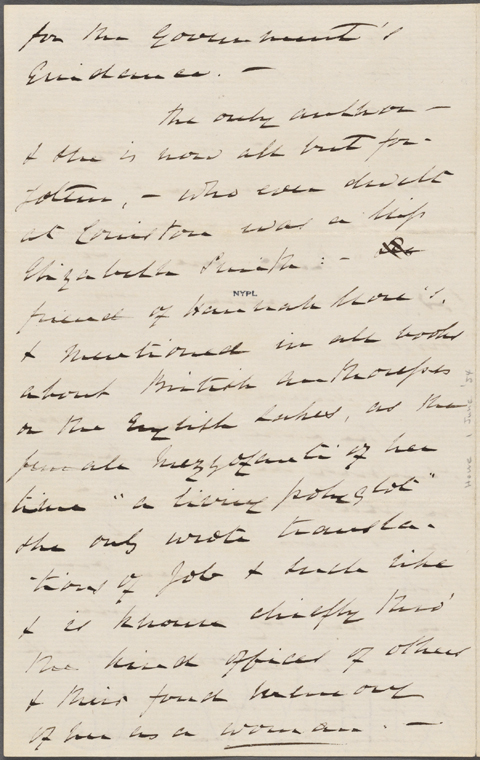 for the Government's
Guidance. —
The only author —
& she is now all but for-
gotten, — who ever dwelt
at Coniston was a Miss
Elizabeth Smith: —
NYPL
friend of Hannah More's,
& mentioned in all books
about British authoresses
or the English Lakes, as the
female Mezzofanti of her
time "a living polyglot"
she only wrote transla-
tions of Job & such like
& is known chiefly thro'
the kind offices of others
& their fond memory
of her as a woman. —
Howe 1 June '54